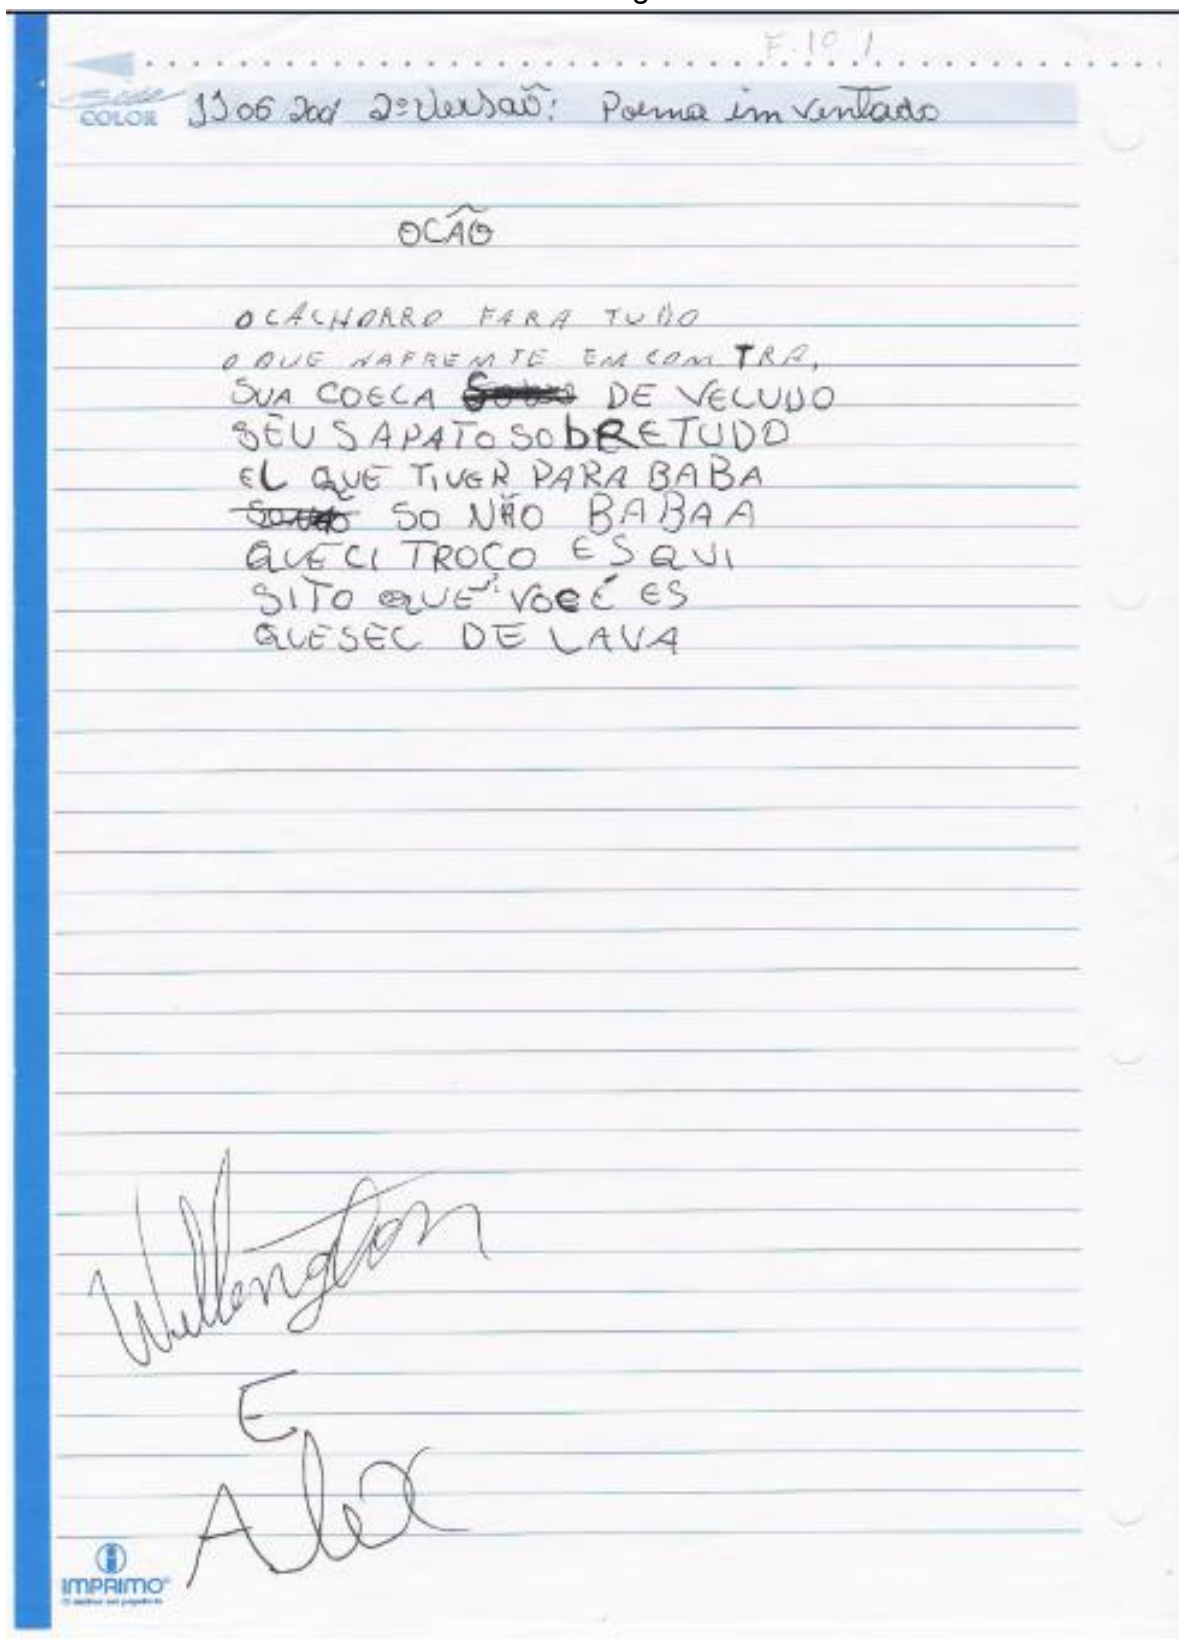 F. 10 1
COLOR 11 06 2001 2º Versaõ: Poema im ventado
OCÃO
O CACHORRO FARA TUDO
O QUE NAFREMTE EMCOMTRA,
SUA COECA DE VELUDO
SEU SAPATO SOBRETUDO
EL QUE TIVER PARA BABA
SO NÃO BABA A
QUECI TROÇO ESQUI
SITO QUE VOCÉ ES
QUESEC DE LAVA
Wellington
E
Alex
IMPRIMO